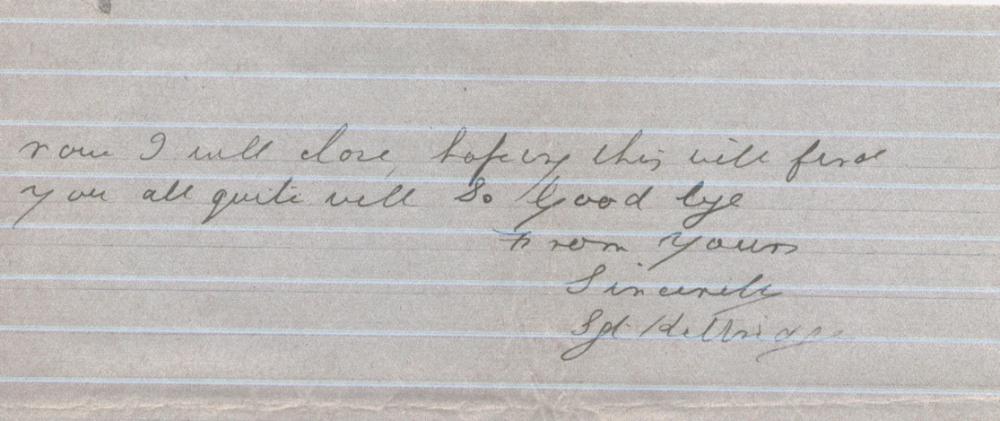 now I will close, hoping this will find
you all quite well So Good bye
From yours
Sincerely
Sgt Kittridge